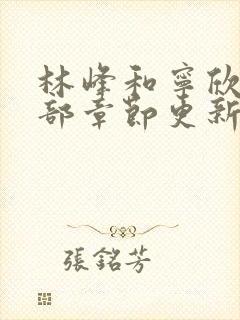 林峰和寧欣
部章節更新
張銘芳